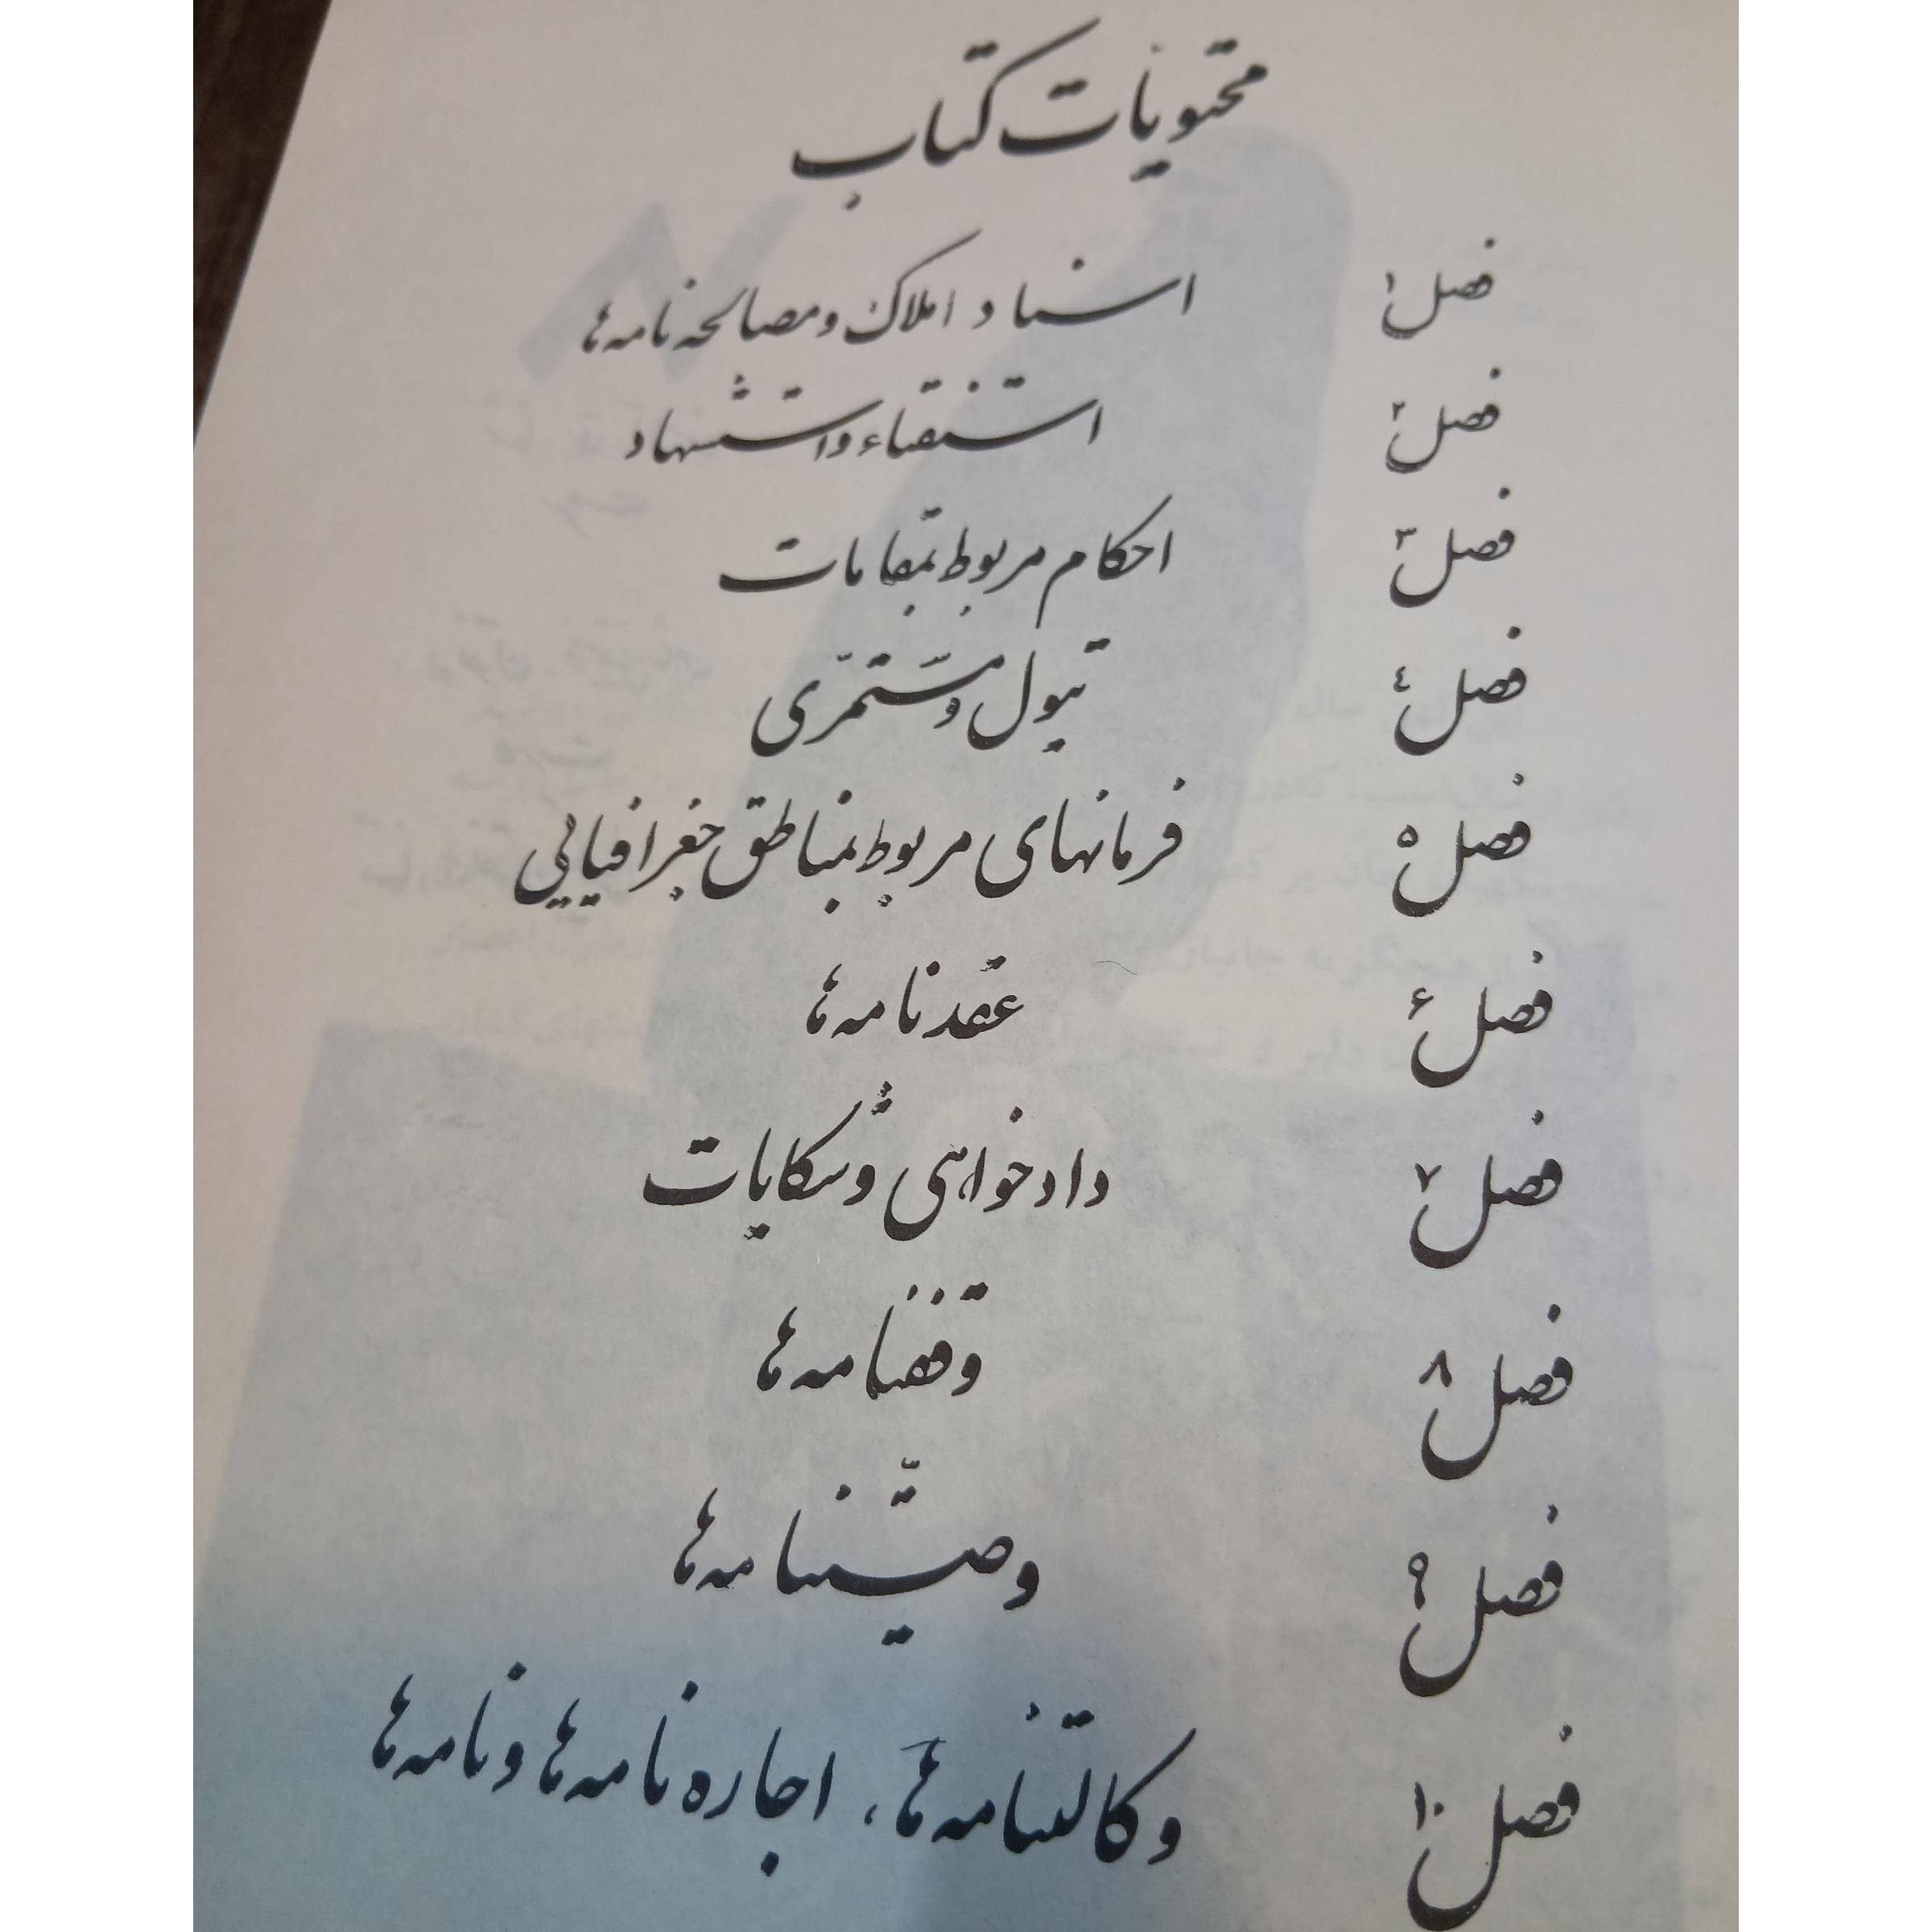 محتویات کتاب
فصل ۱ اسناد املاک و مصالحه نامه ها
فصل ۲ استفتاء و استشهاد
فصل ۳ احکام مربوط بمقامات
فصل ٤ تیول و مستمرّی
فصل ۵ فرمانهای مربوط بمناطق جغرافیایی
فصل ۶ عقدنامه ها
فصل ۷ دادخواهی و شکایات
فصل ۸ وقفنامه ها
فصل ۹ وصیّتنامه ها
فصل ۱۰ وکالتنامه ها، اجاره نامه ها و نامه ها